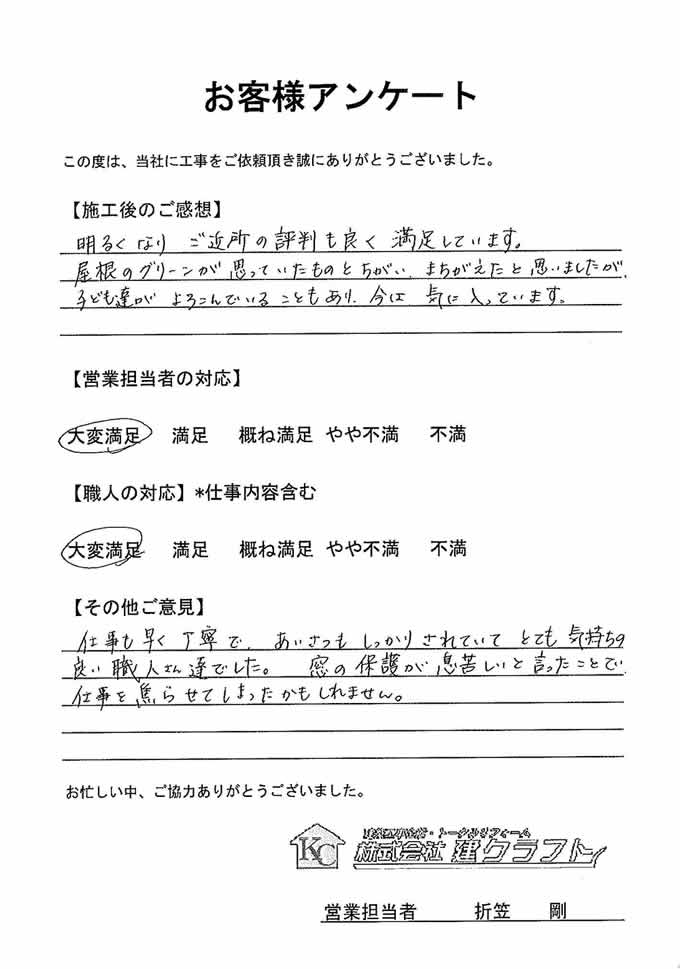 お客様アンケート
この度は、当社に工事をご依頼頂き誠にありがとうございました。
【施工後のご感想】
明るくなり ご近所の評判も良く 満足しています。
屋根のグリーンが思っていたものとちがい、まちがえたと思いましたが、
子ども達が よろこんでいることもあり、今は 気に入っています。
【営業担当者の対応】
大変満足 満足 概ね満足 やや不満 不満
【職人の対応】*仕事内容含む
大変満足 満足 概ね満足 やや不満 不満
【その他ご意見】
仕事も早く丁寧で、あいさつもしっかりされていて とても気持ちの
良い職人さん達でした。 窓の保護が息苦しいと言ったことで
仕事を焦らせてしまったかもしれません。
お忙しい中、ご協力ありがとうございました。
KC
トータルリフォーム
株式会社 建クラフト
営業担当者 折笠 剛